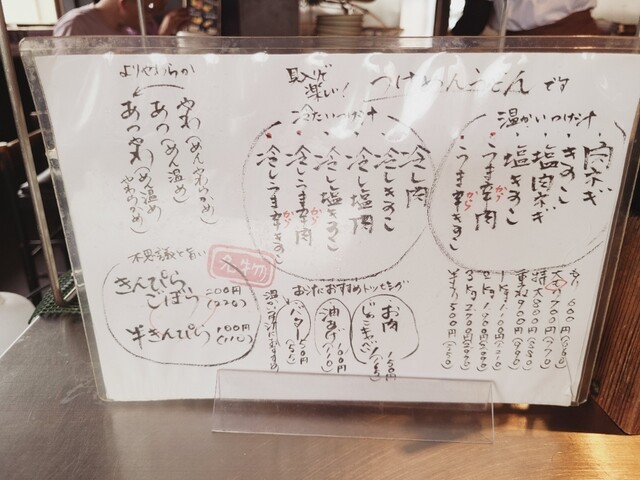 つけめんうどんです
温かいつけ汁
肉ネギ
きのこ
塩肉ネギ
塩きのこ
うま辛肉
から
うま辛きのこ
から
冷たいつけ汁
冷し肉
冷しきのこ
冷し塩肉
冷し塩きのこ
冷しうま辛肉
から
冷しうま辛きのこ
から
よりやわらか
やわ(めんやわかめ)
あつ(めん温め)
あつやわ(めん温め やわらかめ)
不思議と旨い
名物
きんぴらごぼう 200円(220)
半きんぴら 100円(110)
お汁におすすめトッピング
お肉
150円
油あげ 100円(110)
バター 50円(55)
温かい汁におすすめ
600円(660)
大 700円(770)
特大 800円(880)
重量 900円(990)
1kg 1100円(1210)